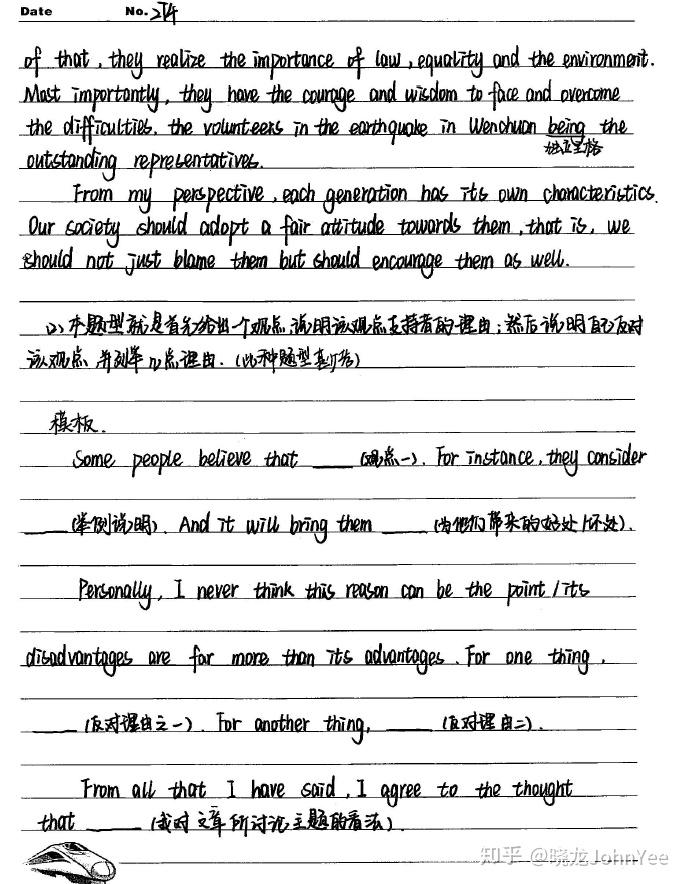 Date No.
of that, they realize the importance of law, equality and the environment.
Most importantly, they have the courage and wisdom to face and overcome
the difficulties. the volunteers in the earthquake in Wenchuan being the
独立主格
outstanding representatives.
From my perspective, each generation has its own characteristics.
Our society should adopt a fair attitude towards them, that is, we
should not just blame them but should encourage them as well.
(2) 本题型就是首先给出一个观点,说明该观点支持者的理由;然后说明自己反对
该观点,并列举几点理由.(此种题型
模板.
Some people believe that ____ (观点一). For instance, they consider
____ (举例说明). And it will bring them ____ (为他们带来的好处/坏处).
Personally, I never think this reason can be the point / its
disadvantages are far more than its advantages. For one thing,
____ (反对理由之一). For another thing, ____ (反对理由二).
From all that I have said, I agree to the thought
that ____ (我对文章所讨论主题的看法).
知乎 @晓龙JohnYee